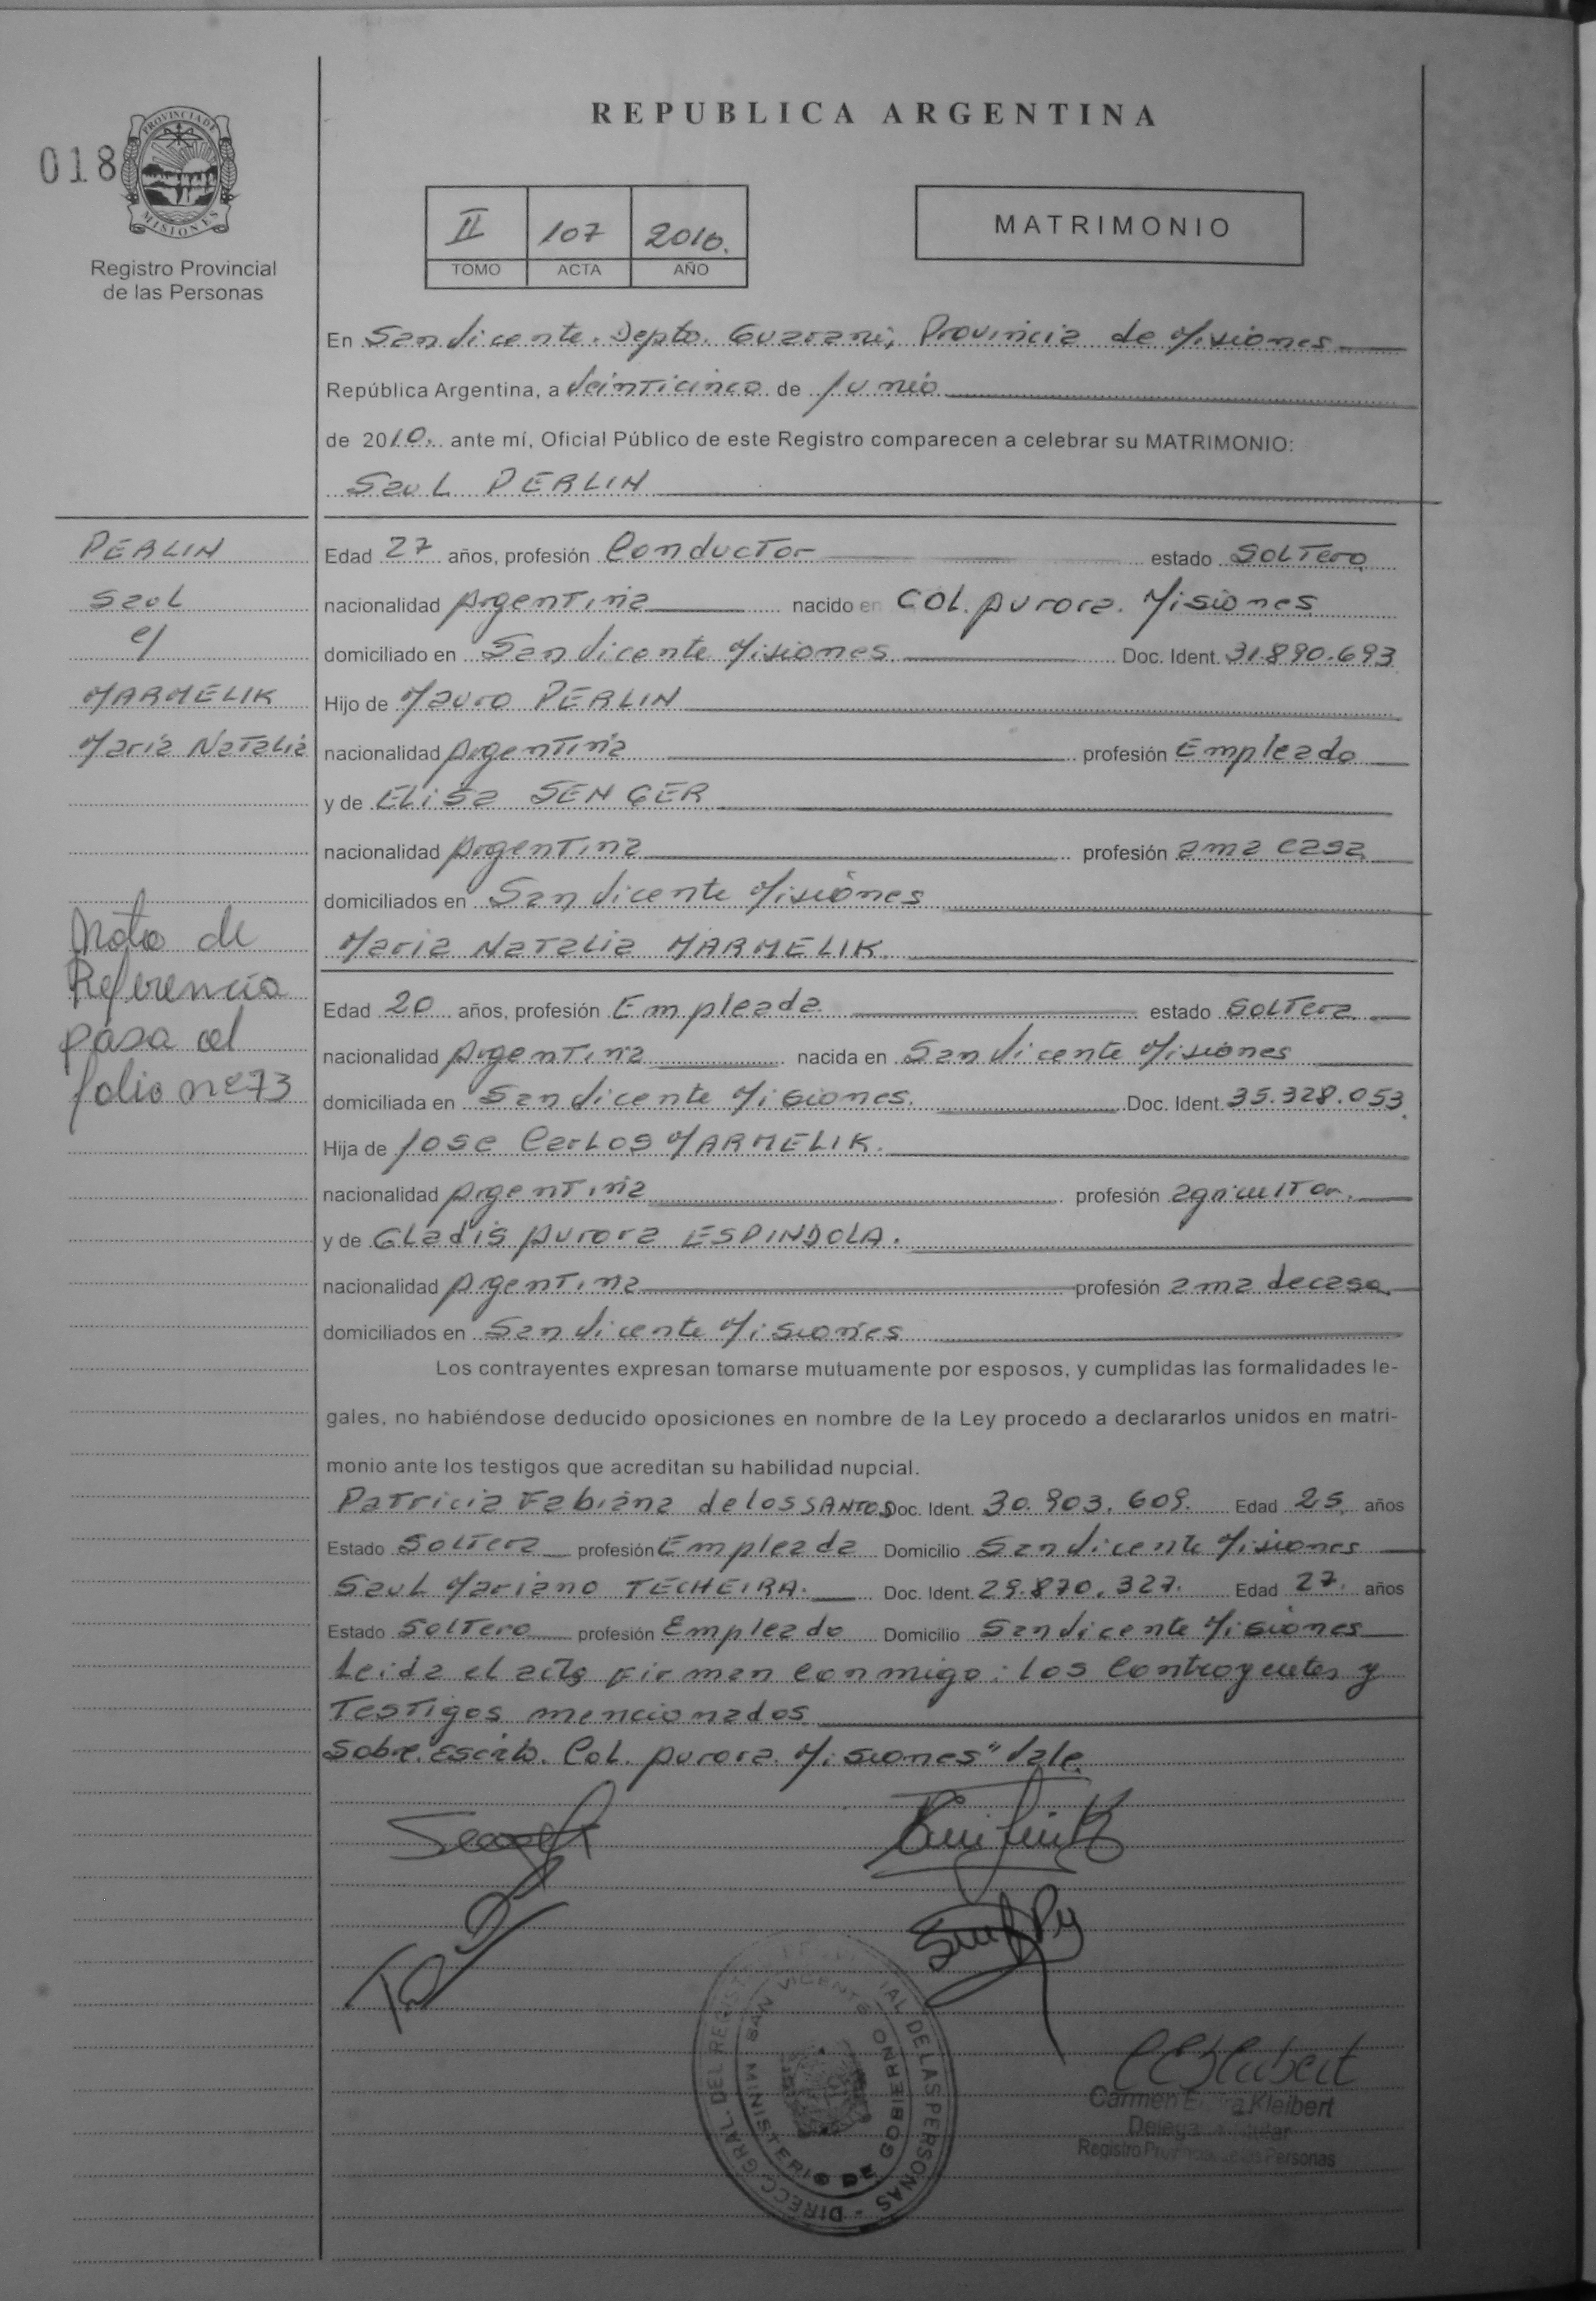 REPUBLICA ARGENTINA
018
PROVINCIA DE
MISIONES
Registro Provincial
de las Personas
II 107 2010.
TOMO ACTA AÑO
MATRIMONIO
En San Vicente. Depto. Guarani, Provincia de Misiones
República Argentina, a Veinticinco de Junio
de 2010. ante mí, Oficial Público de este Registro comparecen a celebrar su MATRIMONIO:
Saul PERLIN
PERLIN
Saul
c/
MARMELIK
Maria Natalia
Nota de
Referencia
pasa al
folio nº 73
Edad 27 años, profesión Conductor estado Soltero
nacionalidad Argentina nacido en COL. Aurora. Misiones
domiciliado en San Vicente Misiones Doc. Ident. 31.890.693
Hijo de Mauro PERLIN
nacionalidad Argentina profesión Empleado
y de Elisa SENGER
nacionalidad Argentina profesión ama casa
domiciliados en San Vicente Misiones
Maria Natalia MARMELIK.
Edad 20 años, profesión Empleada estado Soltera
nacionalidad Argentina nacida en San Vicente Misiones
domiciliada en San Vicente Misiones. Doc. Ident. 35.328.053
Hija de Jose Carlos MARMELIK.
nacionalidad Argentina profesión agricultor.
y de Gladis Aurora ESPINDOLA.
nacionalidad Argentina profesión ama de casa
domiciliados en San Vicente Misiones
Los contrayentes expresan tomarse mutuamente por esposos, y cumplidas las formalidades le-
gales, no habiéndose deducido oposiciones en nombre de la Ley procedo a declararlos unidos en matri-
monio ante los testigos que acreditan su habilidad nupcial.
Patricia Fabiana de los SANTOS Doc. Ident. 30.903.609. Edad 25 años
Estado Soltera profesión Empleada Domicilio San Vicente Misiones
Saul Mariano TECHEIRA. Doc. Ident. 29.870.327. Edad 27. años
Estado Soltero profesión Empleado Domicilio San Vicente Misiones
Leida el acta firman conmigo: los Contrayentes y
Testigos mencionados
Sobre Escrito. Col. Aurora. Misiones" Vale.
DIRECC. GRAL. DEL REGISTRO PROVINCIAL DE LAS PERSONAS -
MINISTERIO DE GOBIERNO
SAN VICENTE
Carmen Kleibert
Registro Provincial de las Personas